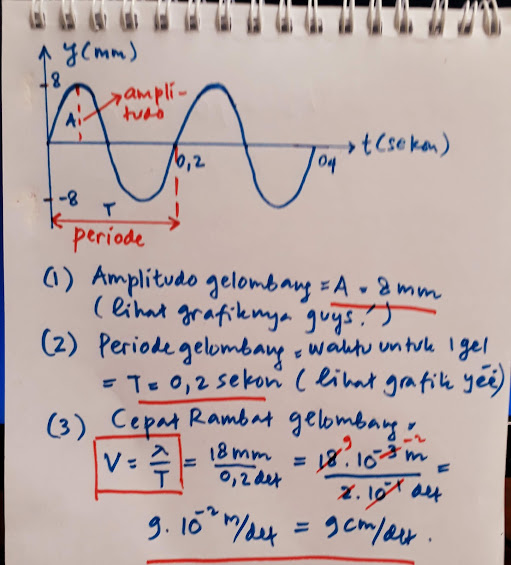 y(mm)
8
A
ampli-
tudo
0,2
0,4
t(sekon)
-8
T
periode
(1) Amplitudo gelombang = A = 8 mm
(lihat grafiknya guys!)
(2) Periode gelombang = waktu untuk 1 gel
= T = 0,2 sekon (lihat grafik yëë)
(3) Cepat Rambat gelombang =
V = λ/T = 18 mm/0,2 det = 18 9 . 10⁻³ ⁻² m/2 . 10⁻¹ det =
9 . 10⁻² m/det = 9 cm/det .